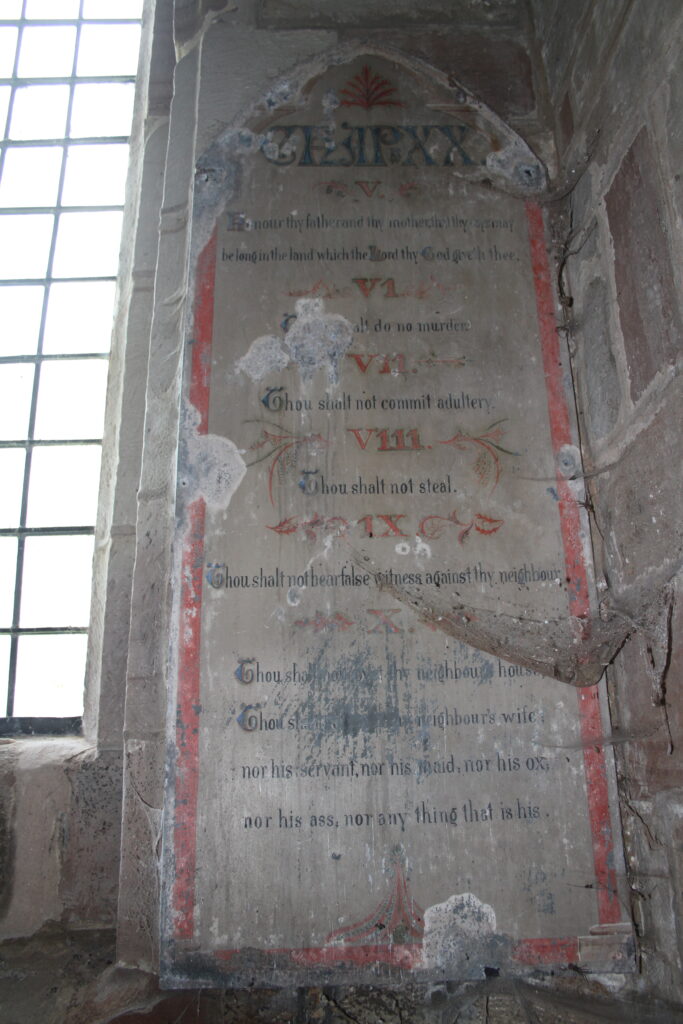 CHAP XX
V.
Honour thy father and thy mother, that thy days may
be long in the land which the Lord thy God giveth thee.
VI.
shalt do no murder.
VII.
Thou shalt not commit adultery.
VIII.
Thou shalt not steal.
IX
Thou shalt not bear false witness against thy neighbour.
X.
Thou shalt not covet thy neighbour's house,
Thou shalt neighbour's wife;
nor his servant, nor his maid, nor his ox,
nor his ass, nor any thing that is his.